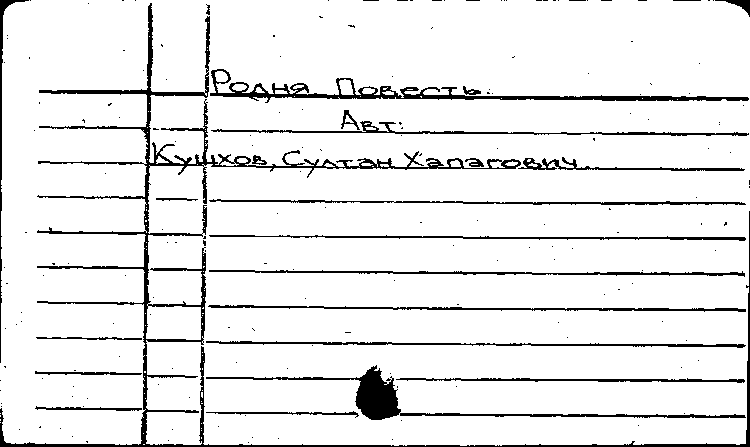 Родня. Повесть.
Авт:
Кушхов, Султан Хапагович.